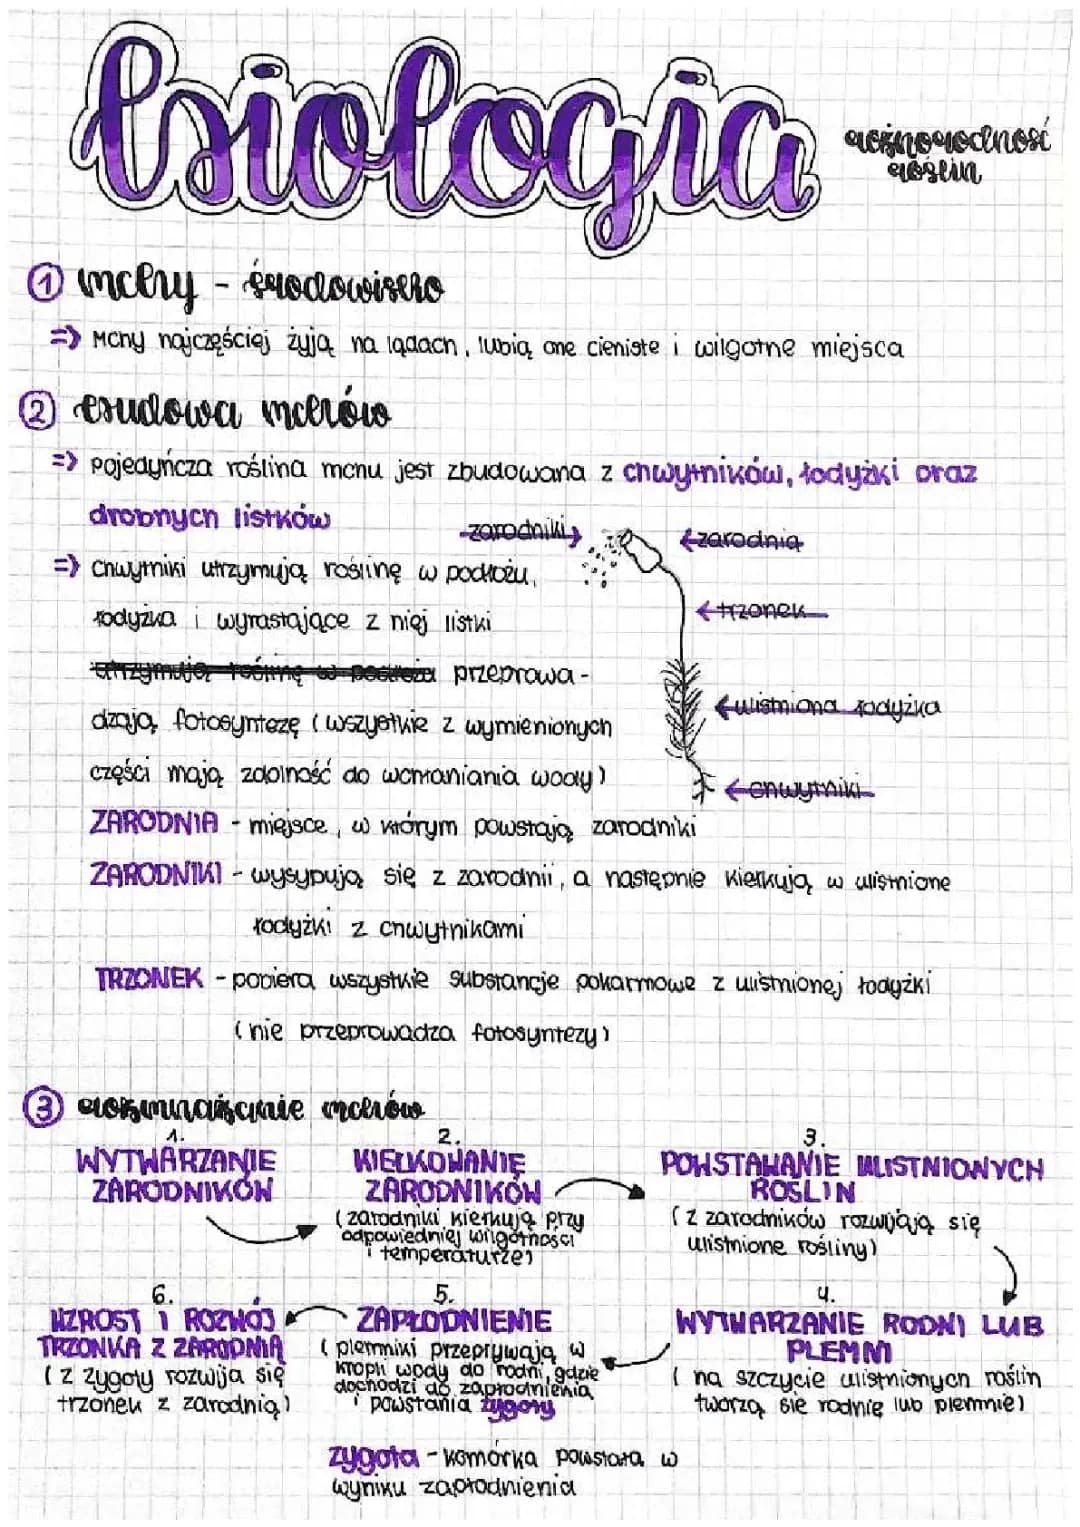 biologia
różnorodność
roślin
① mchy - środowisko
=> Mchy najczęściej żyją na lądach, lubią one cieniste i wilgotne miejsca
② budowa mchów
=> pojedyńcza roślina mchu jest zbudowana z chwytników, łodyżki oraz
drobnych listków
zarodniki
zarodnia
=> chwytniki utrzymują roślinę w podłożu,
trzonek
łodyżka i wyrastające z niej listki
utrzymują roślinę w podłożu przeprowa-
ulistniona łodyżka
dzają fotosyntezę (wszystkie z wymienionych
części mają zdolność do wchłaniania wody)
chwytniki
ZARODNIA - miejsce, w którym powstają zarodniki
ZARODNIKI - wysypują się z zarodnii, a następnie kiełkują w ulistnione
łodyżki z chwytnikami
TRZONEK - pobiera wszystkie substancje pokarmowe z ulistnionej łodyżki
(nie przeprowadza fotosyntezy)
③ rozmnażanie mchów
1.
WYTWARZANIE
ZARODNIKÓW
2.
KIEŁKOWANIE
ZARODNIKÓW
(zarodniki kiełkują przy
odpowiedniej wilgotności
i temperaturze)
3.
POWSTAWANIE ULISTNIONYCH
ROŚLIN
(z zarodników rozwijają się
ulistnione rośliny)
4.
WYTWARZANIE RODNI LUB
PLEMNI
(na szczycie ulistnionych roślin
tworzą się rodnie lub plemnie)
5.
ZAPŁODNIENIE
(plemniki przepływają w
kropli wody do rodni, gdzie
dochodzi do zapłodnienia
i powstania zygoty
6.
WZROST I ROZWÓJ
TRZONKA Z ZARODNIĄ
(z zygoty rozwija się
trzonek z zarodnią)
zygota - komórka powstała w
wyniku zapłodnienia